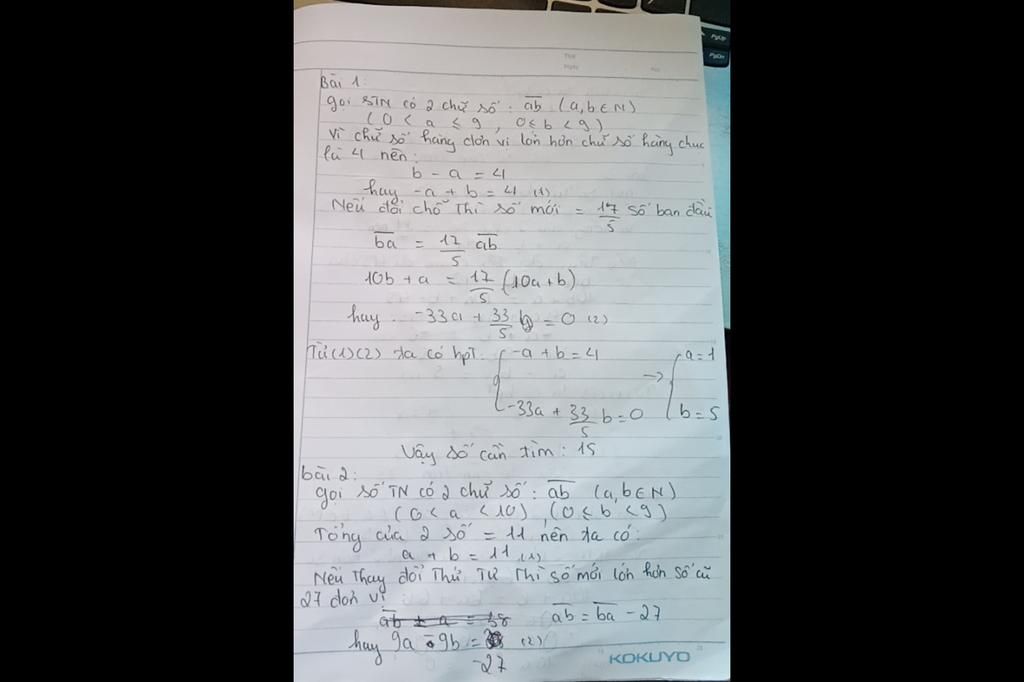 Bài 1:
gọi STN có 2 chữ số: ab (a,b ∈ N)
(0 < a ≤ 9, 0 ≤ b < 9)
Vì chữ số hàng đơn vị lớn hơn chữ số hàng chục
là 4 nên:
b - a = 4
hay -a + b = 4 (1)
Nếu đổi chỗ thì số mới = 17/5 số ban đầu
ba = 17/5 ab
10b + a = 17/5 (10a + b)
hay -33a + 33/5 b = 0 (2)
Từ (1)(2) ta có hpt: { -a + b = 4 → { a = 1
-33a + 33/5 b = 0 b = 5
Vậy số cần tìm: 15
bài 2:
gọi số TN có 2 chữ số: ab (a,b ∈ N)
(0 < a < 10), (0 ≤ b < 9)
Tổng của 2 số = 11 nên ta có:
a + b = 11 (1)
Nếu Thay đổi Thứ Tự Thì số mới lớn hơn số cũ
27 đơn vị
ab = ba - 27
hay 9a - 9b = (2)
-27
KOKUYO